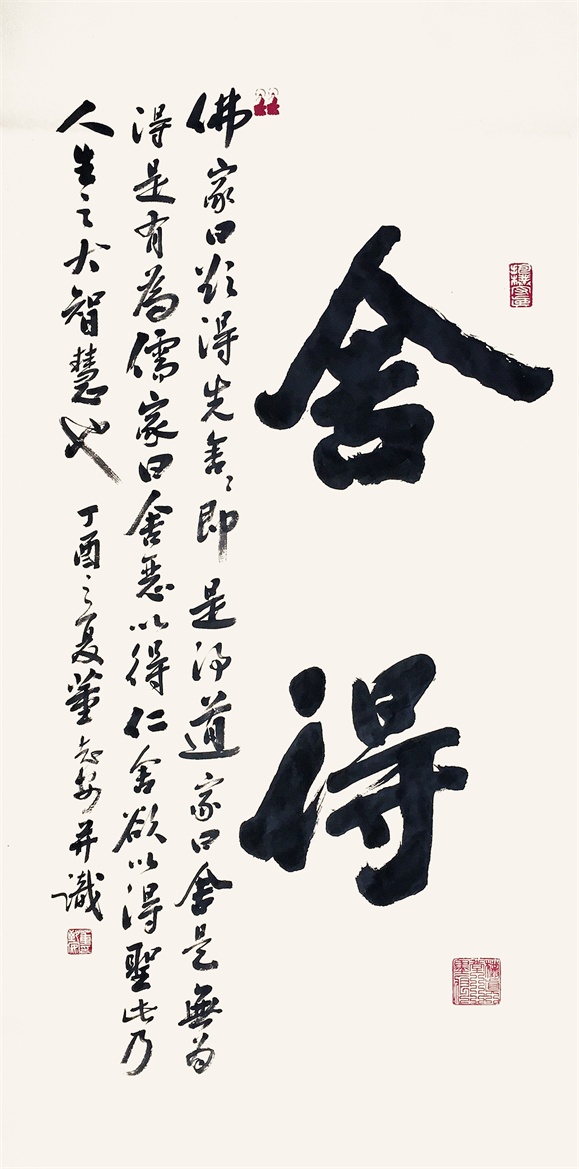 舍得
佛家曰欲得先舍〻即是得道家曰舍是無为
得是有為儒家曰舍恶以得仁舍欲以得聖此乃
人生之大智慧也 丁酉之夏董并識